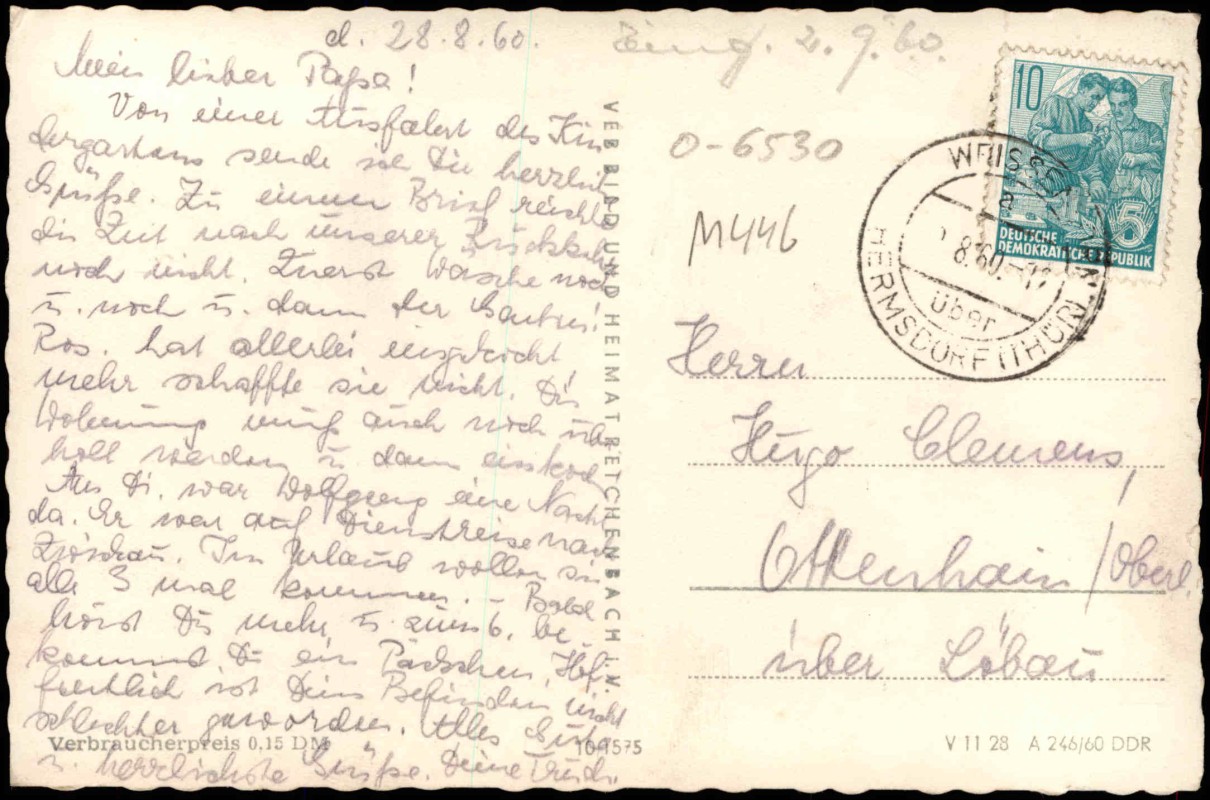 d. 28.8.60.
Mein lieber Papa!
Von einer Ausfahrt des Kin
dergartens sende ich Dir herzlich
Grüße. Zu einem Brief reichte
die Zeit nach unserer Rückkehr
noch nicht. Zuerst Wäsche noch
u. noch u. dann der Garten!
Ros. hat allerlei eingekocht
mehr schaffte sie nicht. Die
Wohnung muß auch noch über
holt werden u. dann
Am Di. war Wolfgang eine Nacht
da. Er war auf Dienstreise nach
Zwickau. Im Urlaub wollen sie
alle 3 mal kommen. - Bald
hörst Du mehr u. zum 6. be-
kommst Du ein Päckchen. Hof-
fentlich ist Dein Befinden nicht
schlechter geworden. Alles Gute
u. herzlichste Grüße. Deine
Verbraucherpreis 0.15 DM
VEB BILD UND HEIMAT REICHENBACH I. V.
10 1575
Eing. 2.9.60.
O-6530
M446
10
DEUTSCHE
DEMOKRATISCHE REPUBLIK
5
über
HERMSDORF (THÜR)
Herrn
Hugo Clemens,
Ottenhain / Oberl.
über Löbau
V 11 28 A 246/60 DDR